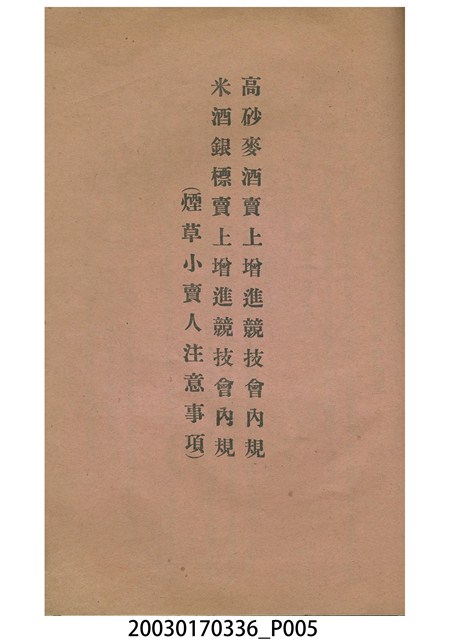 高砂麥酒賣上增進競技會內規
米酒銀標賣上增進競技會內規
(煙草小賣人注意事項)
20030170336_P005